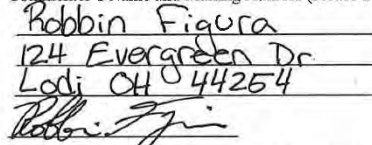 Robbin Figura
124 Evergreen Dr
Lodi OH 44254